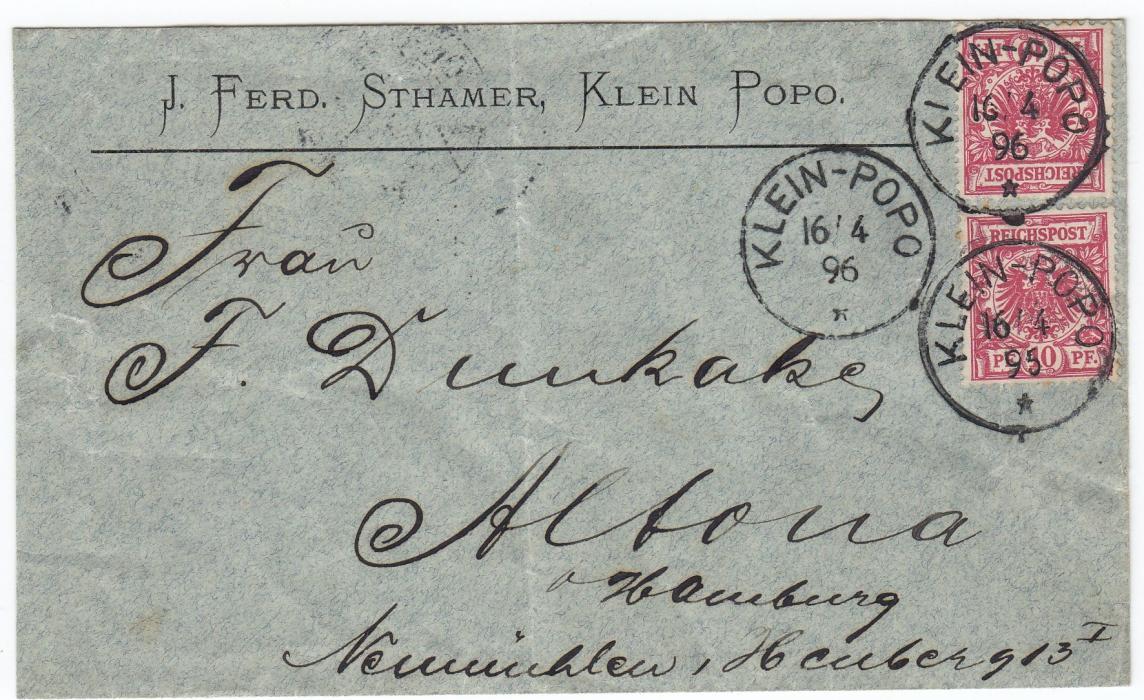 J. FERD. STHAMER, KLEIN POPO.
KLEIN-POPO
16/4
96
*
REICHSPOST
KLEIN-POPO
16/4
96
*
REICHSPOST
PF. 10 PF.
KLEIN-POPO
16/4
95
*
Frau
F. Dunkake
Altona
Hamburg
Neumühlen, Heuberg 13 I